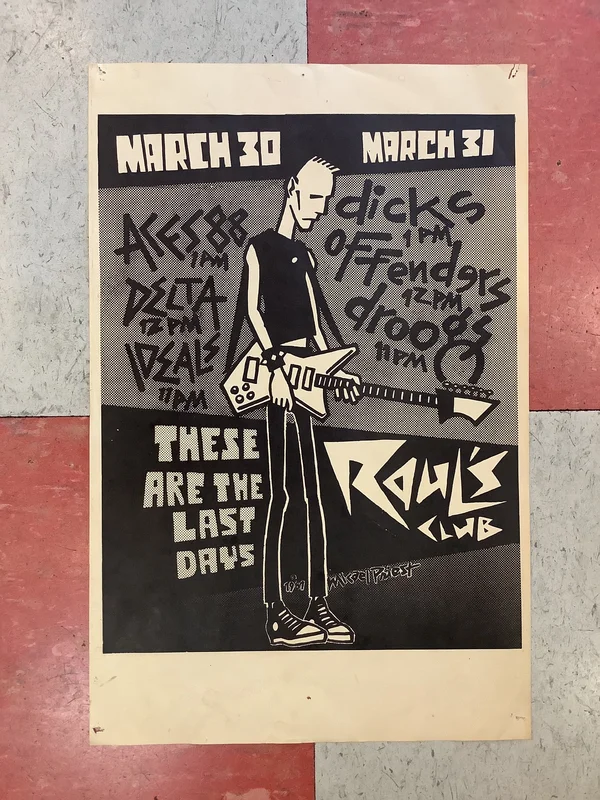 MARCH 30
ACES 88
1 PM
DELTA
12 PM
IDEALS
11 PM
MARCH 31
dicks
1 PM
OFFenders
12 PM
droogs
11 PM
THESE
ARE THE
LAST
DAYS
RauL's
CLUB
© 1981 Micael Priest